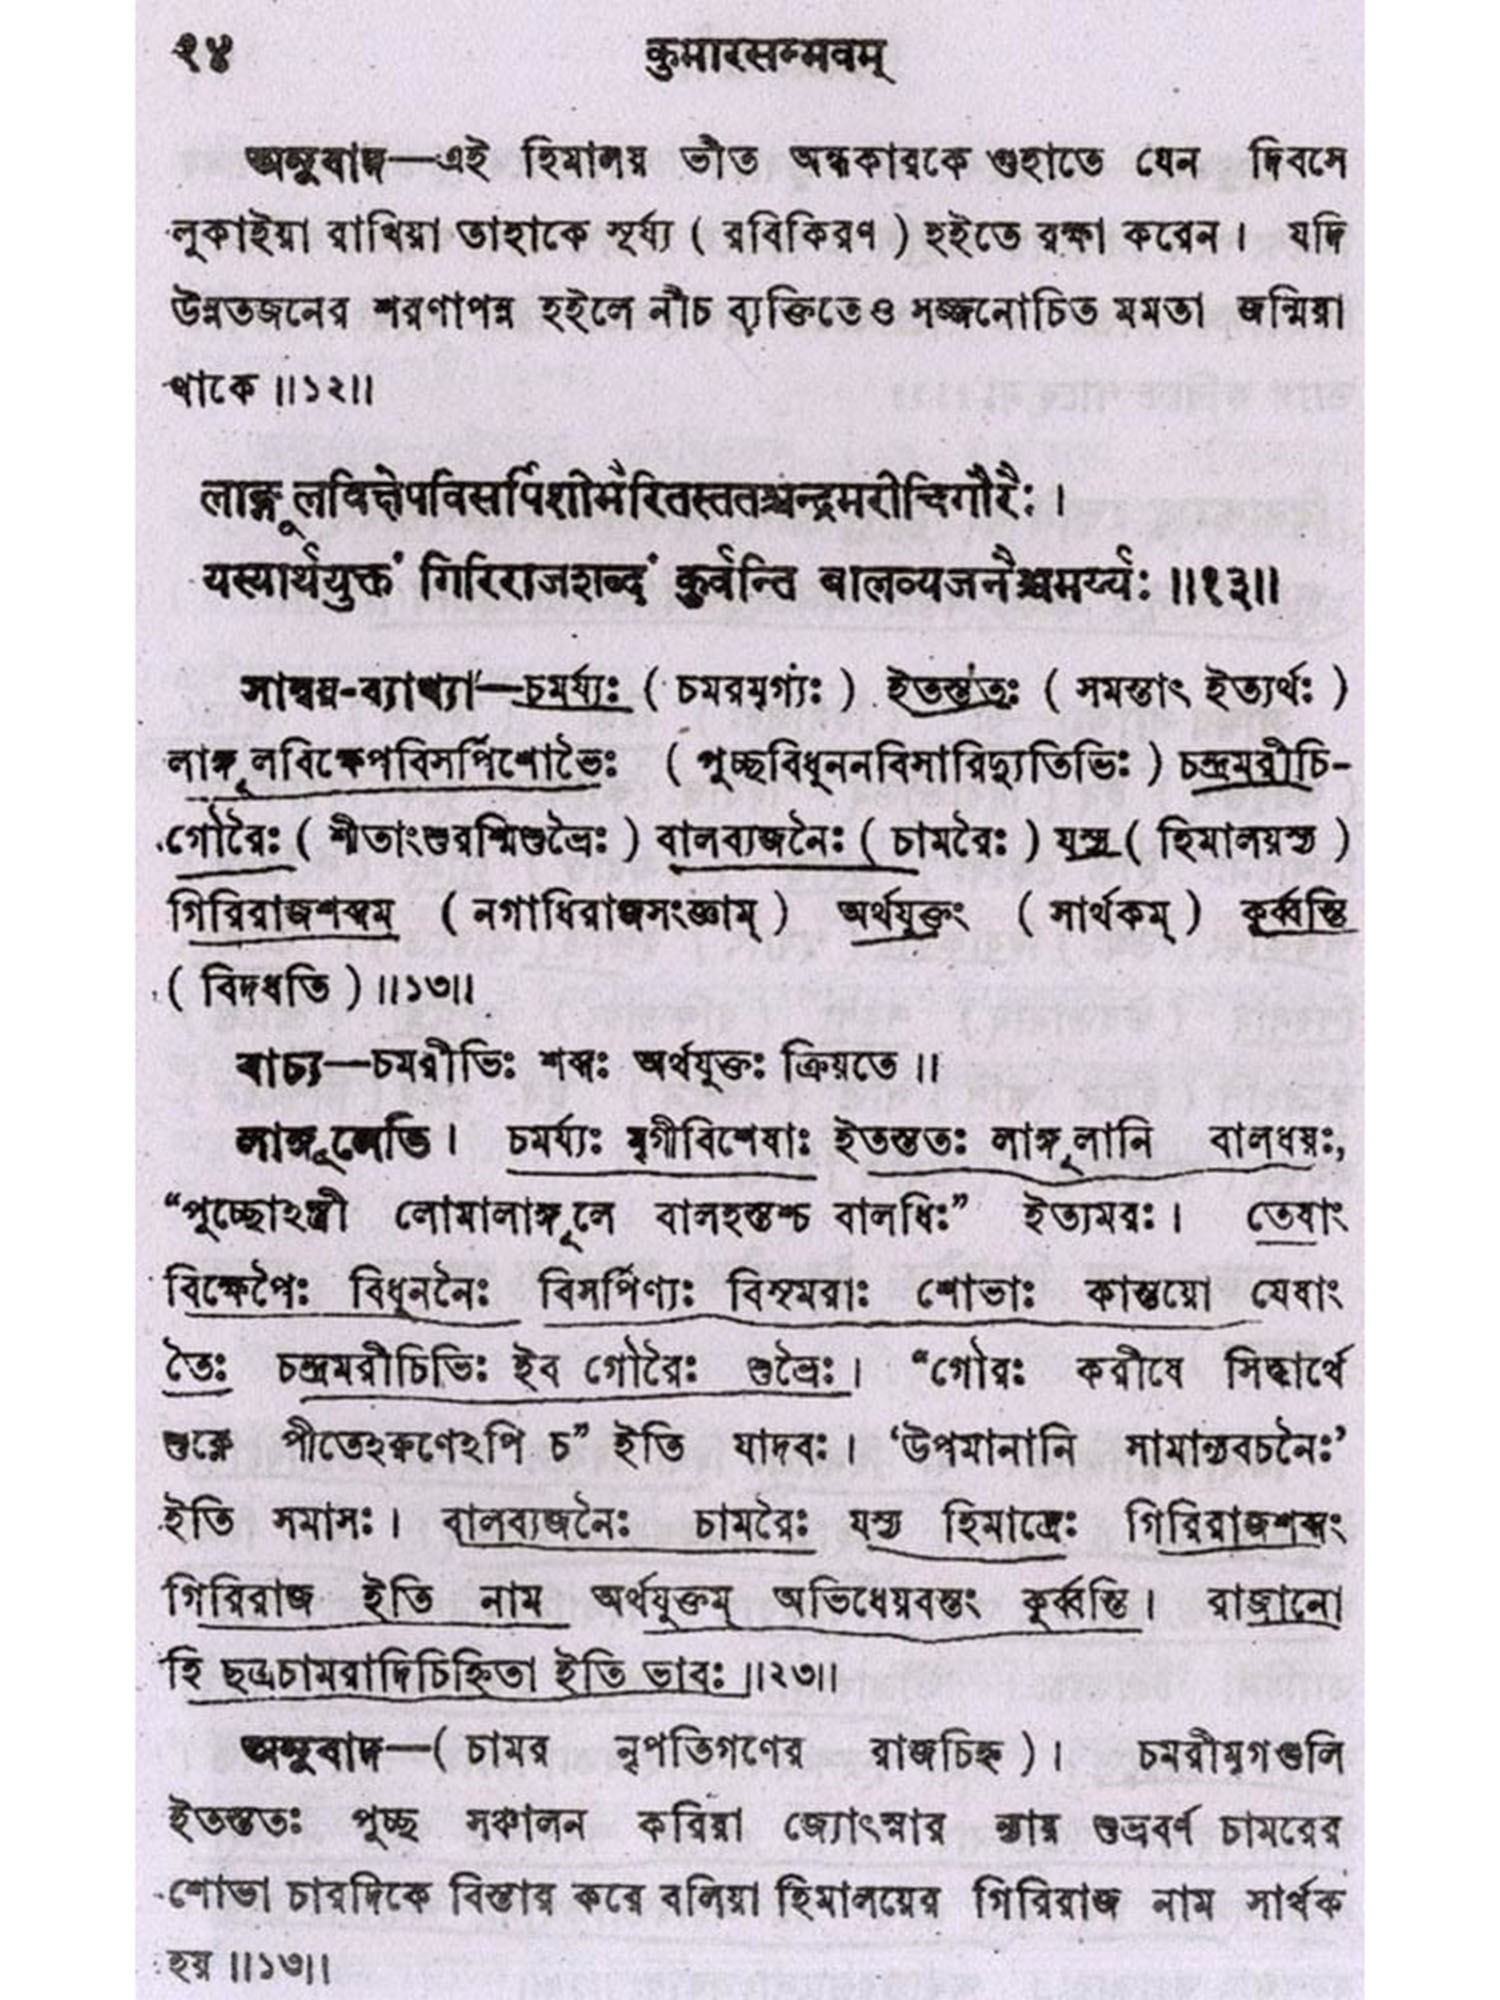 १४ कुमारसम्भवम्
অনুবাদ—এই হিমালয় ভীত অন্ধকারকে গুহাতে যেন দিবসে
লুকাইয়া রাখিয়া তাহাকে সূর্য্য ( রবিকিরণ ) হইতে রক্ষা করেন। যদি
উন্নতজনের শরণাপন্ন হইলে নীচ ব্যক্তিতেও সজ্জনোচিত মমতা জন্মিয়া
থাকে ॥১২॥
लाङ्गूलविक्षेपविसर्पिशोभैरितस्ततश्चन्द्रमरीचिगौरैः ।
यस्यार्थयुक्तं गिरिराजशब्दं कुर्वन्ति बालव्यजनैश्चमर्य्यः ॥१३॥
সান্বয়-ব্যাখ্যা—চমর্য্যঃ ( চমরমৃগ্যঃ ) ইতস্ততঃ ( সমন্তাৎ ইত্যর্থঃ )
লাঙ্গূলবিক্ষেপবিসর্পিশোভৈঃ ( পুচ্ছবিধূননবিসারিদ্যুতিভিঃ ) চন্দ্রমরীচি-
গৌরৈঃ ( শীতাংশুরশ্মিশুভ্রৈঃ ) বালব্যজনৈঃ ( চামরৈঃ ) যস্য ( হিমালয়স্য )
গিরিরাজশব্দম্ ( নগাধিরাজসংজ্ঞাম্ ) অর্থযুক্তং ( সার্থকম্ ) কুর্ব্বন্তি
( বিদধতি ) ॥১৩॥
বাচ্য—চমরীভিঃ শব্দঃ অর্থযুক্তঃ ক্রিয়তে ॥
লাঙ্গূলেতি। চমর্য্যঃ মৃগীবিশেষাঃ ইতস্ততঃ লাঙ্গূলানি বালধয়ঃ,
“পুচ্ছোঽস্ত্রী লোমালাঙ্গূলে বালহস্তশ্চ বালধিঃ” ইত্যমরঃ। তেষাং
বিক্ষেপৈঃ বিধূননৈঃ বিসর্পিণ্যঃ বিসৃমরাঃ শোভাঃ কান্তয়ো যেষাং
তৈঃ চন্দ্রমরীচিভিঃ ইব গৌরৈঃ শুভ্রৈঃ। “গৌরঃ করীষে সিদ্ধার্থে
শুক্লে পীতেঽরুণেঽপি চ” ইতি যাদবঃ। ‘উপমানানি সামান্যবচনৈঃ’
ইতি সমাসঃ। বালব্যজনৈঃ চামরৈঃ যস্য হিমাদ্রেঃ গিরিরাজশব্দং
গিরিরাজ ইতি নাম অর্থযুক্তম্ অভিধেয়বন্তং কুর্ব্বন্তি। রাজানো
হি ছত্রচামরাদিচিহ্নিতা ইতি ভাবঃ ॥২৩॥
অনুবাদ—( চামর নৃপতিগণের রাজচিহ্ন )। চমরীমৃগগুলি
ইতস্ততঃ পুচ্ছ সঞ্চালন করিয়া জ্যোৎস্নার ন্যায় শুভ্রবর্ণ চামরের
শোভা চারদিকে বিস্তার করে বলিয়া হিমালয়ের গিরিরাজ নাম সার্থক
হয় ॥১৩॥